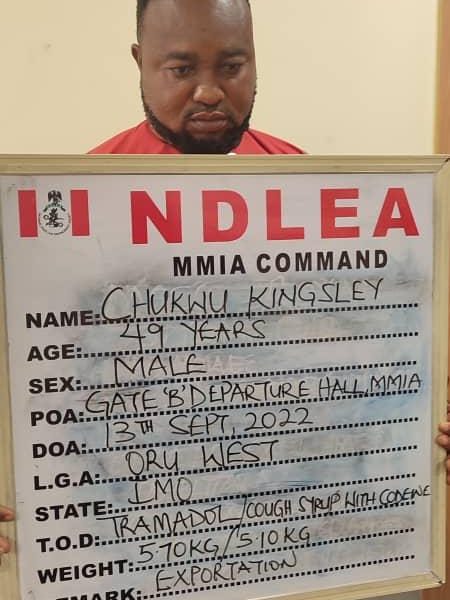 NDLEA
MMIA COMMAND
NAME: CHUKWU KINGSLEY
AGE: 49 YEARS
SEX: MALE
POA: GATE 'B' DEPARTURE HALL, MMIA
DOA: 13TH SEPT, 2022
L.G.A: ORU WEST
STATE: IMO
T.O.D: TRAMADOL/COUGH SYRUP WITH CODEINE
WEIGHT: 5.70KG/5.10KG
EMARK: EXPORTATION